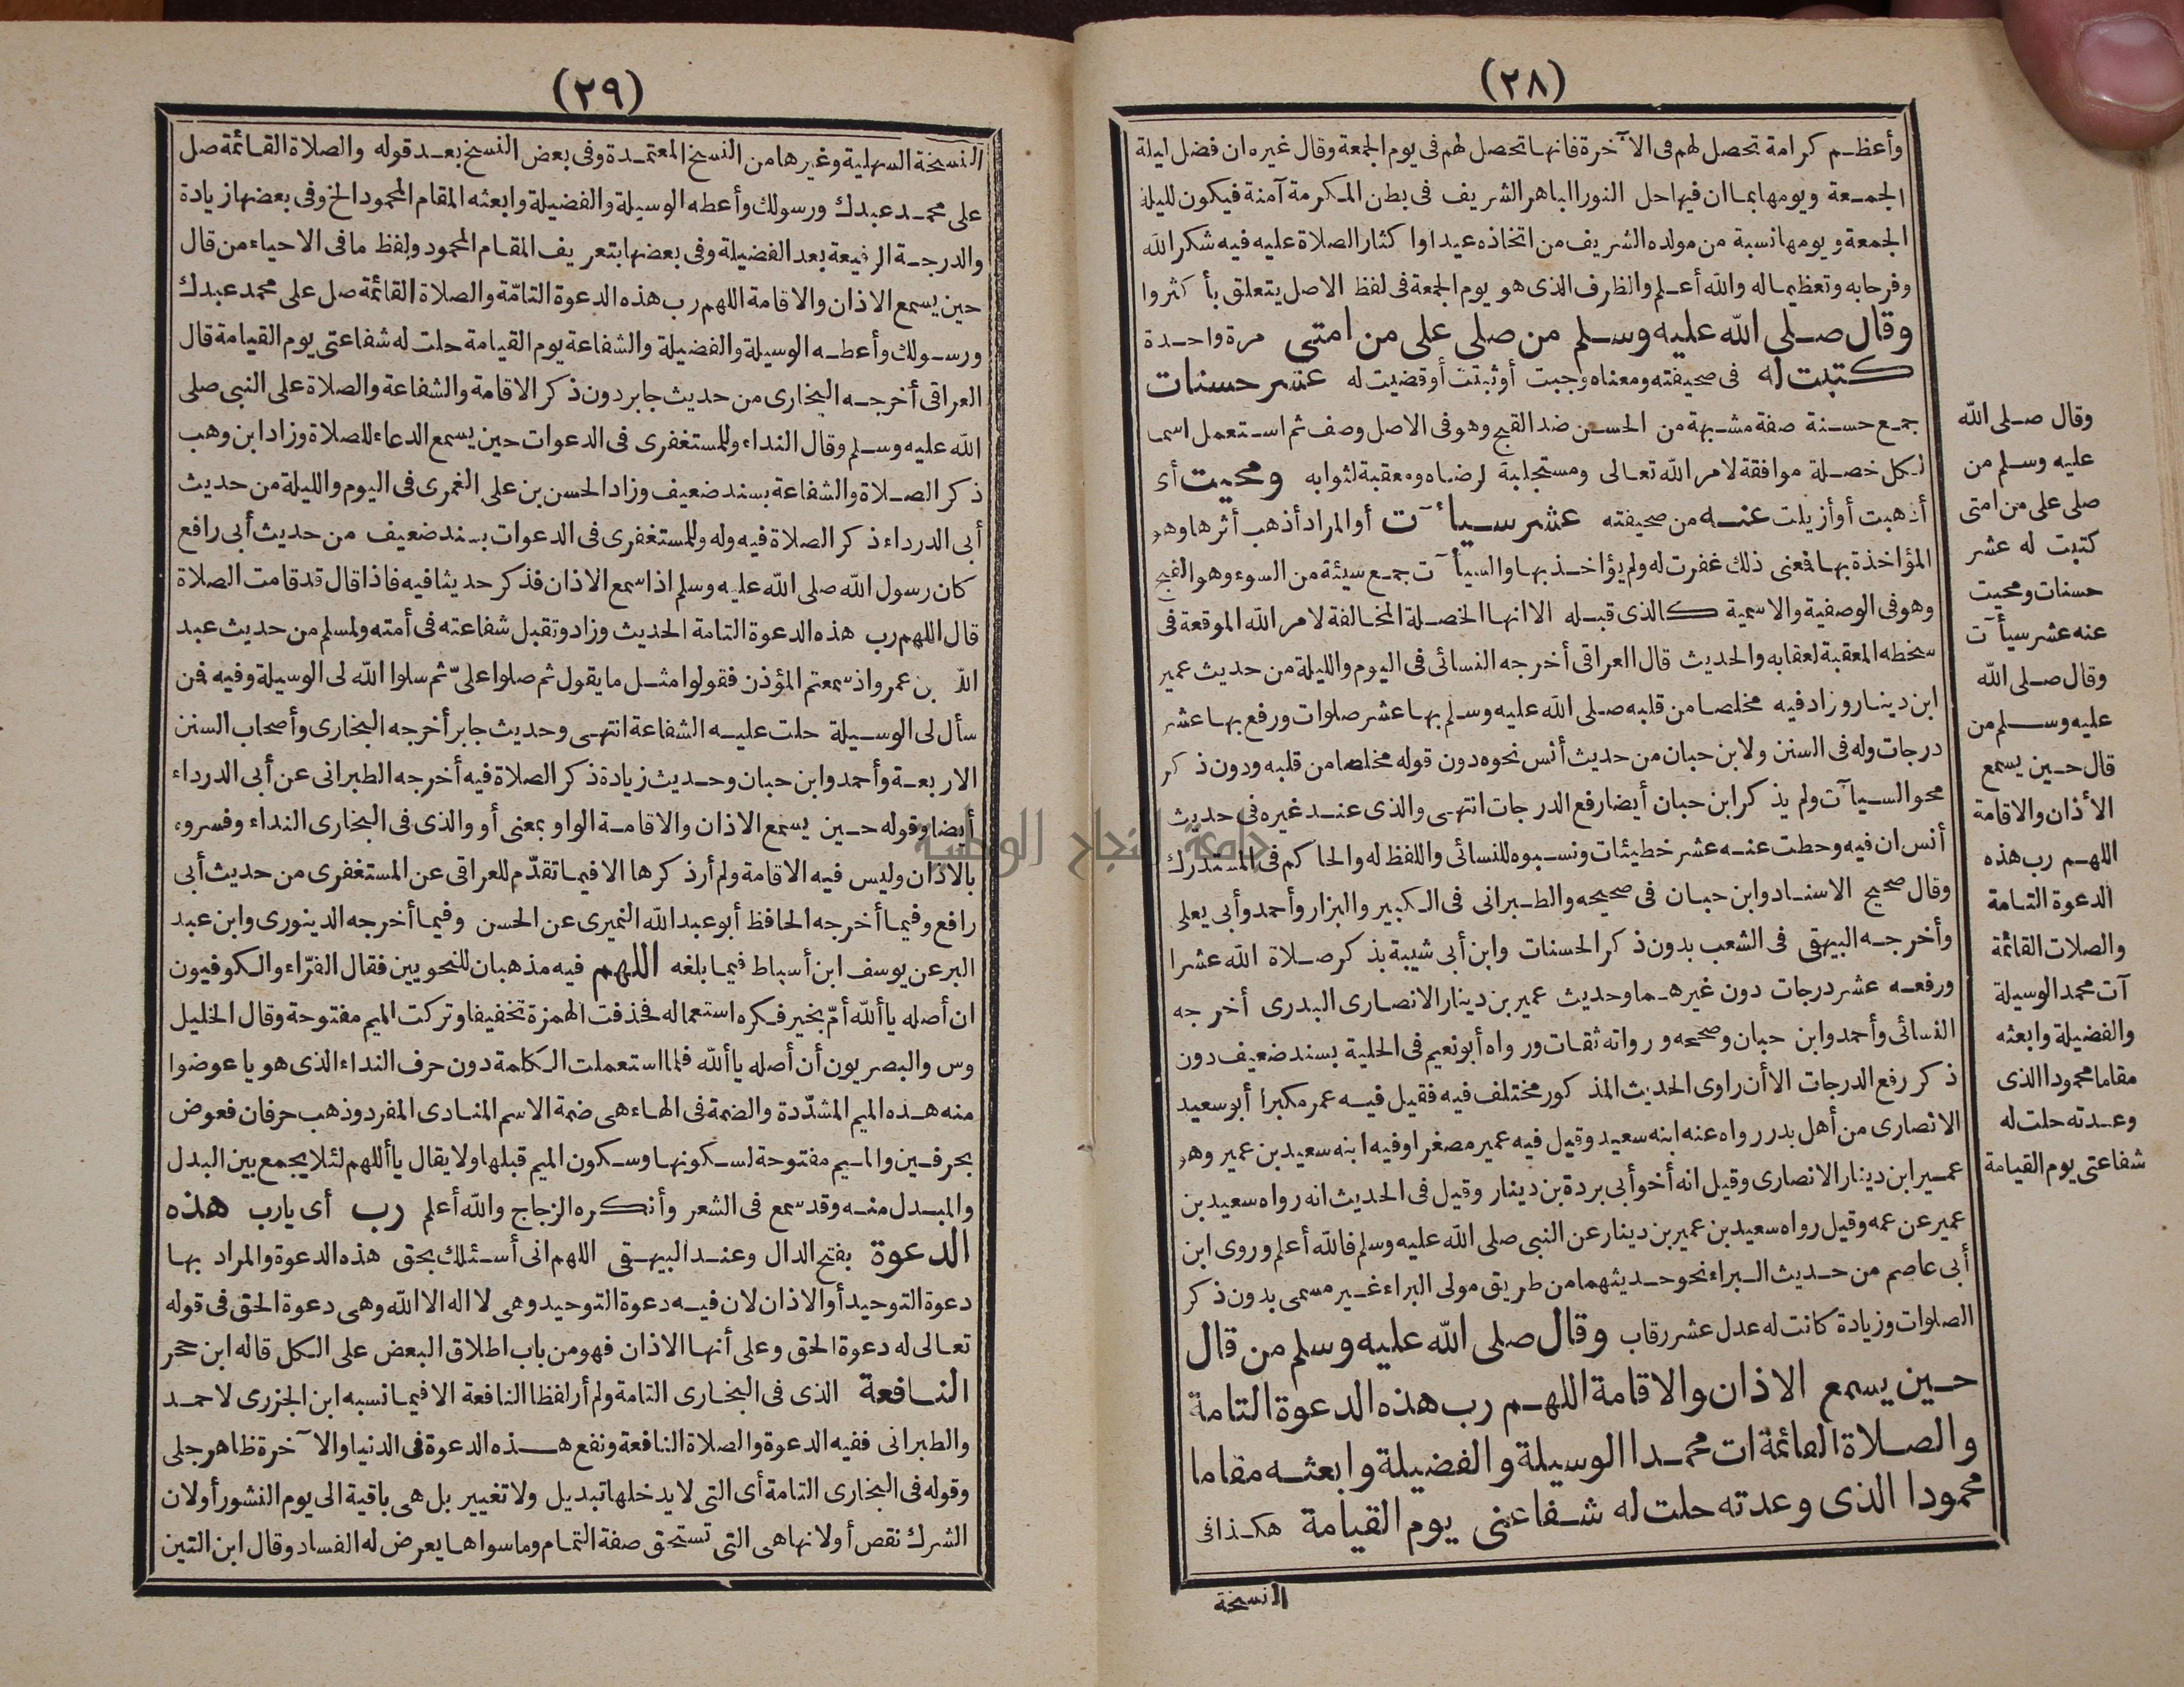 (٢٨)
وأعظم كرامة تحصل لهم فى الآخرة فانها تحصل لهم فى يوم الجمعة وقال غيره ان فضل ليلة
الجمعة ويومها بما ان فيها حل النور الباهر الشريف فى بطن المكرمة آمنة فيكون لليلة
الجمعة ويومها نسبة من مولده الشريف من اتخاذه عيدا واكثار الصلاة عليه فيه شكر الله
وفرحا به وتعظيما له والله أعلم والظرف الذى هو يوم الجمعة فى لفظ الاصل يتعلق بأكثروا
وقال صلى الله عليه وسلم من صلى على من امتى مرة واحدة
كتبت له فى صحيفته ومعناه وجبت أو ثبتت أو قضيت له عشر حسنات
جمع حسنة صفة مشبهة من الحسن ضد القبح وهو فى الاصل وصف ثم استعمل اسما
لكل خصلة موافقة لامر الله تعالى ومستجلبة لرضاه ومعقبة لثوابه ومحيت أى
أذهبت أو أزيلت عنه من صحيفته عشر سيآت أو المراد أذهب أثرها وهو
المؤاخذة بها فعنى ذلك غفرت له ولم يؤاخذ بها والسيآت جمع سيئة من السوء وهو القبح
وهو فى الوصفية والاسمية كالذى قبله الا انها الخصلة المخالفة لامر الله الموقعة فى
سخطه المعقبة لعقابه والحديث قال العراقى أخرجه النسائى فى اليوم والليلة من حديث عمير
ابن دينار وزاد فيه مخلصا من قلبه صلى الله عليه وسلم بها عشر صلوات ورفع بها عشر
درجات وله فى السنن ولابن حبان من حديث أنس نحوه دون قوله مخلصا من قلبه ودون ذكر
محو السيآت ولم يذكر ابن حبان أيضا رفع الدرجات انتهى والذى عند غيره فى حديث
أنس ان فيه وحطت عنه عشر خطيئات ونسبوه للنسائى واللفظ له والحاكم فى المستدرك
وقال صحيح الاسناد وابن حبان فى صحيحه والطبرانى فى الكبير والبزار وأحمد وأبى يعلى
وأخرجه البيهقى فى الشعب بدون ذكر الحسنات وابن أبى شيبة بذكر صلاة الله عشرا
ورفعه عشر درجات دون غيرهما وحديث عمير بن دينار الانصارى البدرى أخرجه
النسائى وأحمد وابن حبان وصححه ورواته ثقات ورواه أبو نعيم فى الحلية بسند ضعيف دون
ذكر رفع الدرجات الا أن راوى الحديث المذكور مختلف فيه فقيل فيه عمر مكبرا أبو سعيد
الانصارى من أهل بدر رواه عنه ابنه سعيد وقيل فيه عمير مصغرا وفيه ابنه سعيد بن عمير وهو
عمير ابن دينار الانصارى وقيل انه أخو أبى بردة بن دينار وقيل فى الحديث انه رواه سعيد بن
عمير عن عمه وقيل رواه سعيد بن عمير بن دينار عن النبى صلى الله عليه وسلم فالله أعلم وروى ابن
أبى عاصم من حديث البراء نحو حديثهما من طريق مولى البراء غير مسمى بدون ذكر
الصلوات وزيادة كانت له عدل عشر رقاب وقال صلى الله عليه وسلم من قال
حين يسمع الاذان والاقامة اللهم رب هذه الدعوة التامة
والصلاة القائمة ات محمدا الوسيلة والفضيلة وابعثه مقاما
محمودا الذى وعدته حلت له شفاعتى يوم القيامة هكذا فى
النسخة
وقال صلى الله
عليه وسلم من
صلى على من امتى
كتبت له عشر
حسنات ومحيت
عنه عشر سيأت
وقال صلى الله
عليه وسلم من
قال حين يسمع
الأذان والاقامة
اللهم رب هذه
الدعوة التامة
والصلات القائمة
آت محمد الوسيلة
والفضيلة وابعثه
مقاما محمودا الذى
وعدته حلت له
شفاعتى يوم القيامة
(٢٩)
النسخة السهلية وغيرها من النسخ المعتمدة وفى بعض النسخ بعد قوله والصلاة القائمة صل
على محمد عبدك ورسولك وأعطه الوسيلة والفضيلة وابعثه المقام المحمود الخ وفى بعضها زيادة
والدرجة الرفيعة بعد الفضيلة وفى بعضها بتعريف المقام المحمود ولفظ ما فى الاحياء من قال
حين يسمع الاذان والاقامة اللهم رب هذه الدعوة التامّة والصلاة القائمة صل على محمد عبدك
ورسولك وأعطه الوسيلة والفضيلة والشفاعة يوم القيامة حلت له شفاعتى يوم القيامة قال
العراقى أخرجه البخارى من حديث جابر دون ذكر الاقامة والشفاعة والصلاة على النبى صلى
الله عليه وسلم وقال النداء وللمستغفرى فى الدعوات حين يسمع الدعاء للصلاة وزاد ابن وهب
ذكر الصلاة والشفاعة بسند ضعيف وزاد الحسن بن على الغمرى فى اليوم والليلة من حديث
أبى الدرداء ذكر الصلاة فيه وله وللمستغفرى فى الدعوات بسند ضعيف من حديث أبى رافع
كان رسول الله صلى الله عليه وسلم اذا سمع الاذان فذكر حديثا فيه فاذا قال قد قامت الصلاة
قال اللهم رب هذه الدعوة التامة الحديث وزاد وتقبل شفاعته فى أمته ولمسلم من حديث عبد
الله بن عمرو اذ سمعتم المؤذن فقولوا مثل ما يقول ثم صلوا علىّ ثم سلوا الله لى الوسيلة وفيه فمن
سأل لى الوسيلة حلت عليه الشفاعة انتهى وحديث جابر أخرجه البخارى وأصحاب السنن
الاربعة وأحمد وابن حبان وحديث زيادة ذكر الصلاة فيه أخرجه الطبرانى عن أبى الدرداء
أيضا وقوله حين يسمع الاذان والاقامة الواو بمعنى أو والذى فى البخارى النداء وفسروه
بالاذان وليس فيه الاقامة ولم أر ذكرها الا فيما تقدّم للعراقى عن المستغفرى من حديث أبى
رافع وفيما أخرجه الحافظ أبو عبد الله النميرى عن الحسن وفيما أخرجه الدينورى وابن عبد
البر عن يوسف ابن أسباط فيما بلغه اللهم فيه مذهبان للنحويين فقال الفرّاء والكوفيون
ان أصله يا ألله أمّ بخير فكره استعماله فحذفت الهمزة تخفيفا وتركت الميم مفتوحة وقال الخليل
وس والبصريون أن أصله يا ألله فلما استعملت الكلمة دون حرف النداء الذى هو يا عوضوا
منه هذه الميم المشدّدة والضمة فى الهاء هى ضمة الاسم المنادى المفرد وذهب حرفان فعوض
بحرفين والميم مفتوحة لسكونها وسكون الميم قبلها ولا يقال يا أللهم لئلا يجمع بين البدل
والمبدل منه وقد سمع فى الشعر وأنكره الزجاج والله أعلم رب أى يارب هذه
الدعوة بفتح الدال وعند البيهقى اللهم انى أسئلك بحق هذه الدعوة والمراد بها
دعوة التوحيد أو الاذان لان فيه دعوة التوحيد وهى لا اله الا الله وهى دعوة الحق فى قوله
تعالى له دعوة الحق وعلى أنها الاذان فهو من باب اطلاق البعض على الكل قاله ابن حجر
النافعة الذى فى البخارى التامة ولم أر لفظ النافعة الا فيما نسبه ابن الجزرى لاحمد
والطبرانى ففيه الدعوة والصلاة النافعة ونفع هذه الدعوة فى الدنيا والآخرة ظاهر جلى
وقوله فى البخارى التامة أى التى لا يدخلها تبديل ولا تغيير بل هى باقية الى يوم النشور أو لان
الشرك نقص أو لانها هى التى تستحق صفة التمام وما سواها يعرض له الفساد وقال ابن التين
جامعة النجاح الوطنية